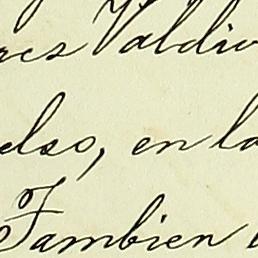 res Valdiv
elso, en la
Tambien